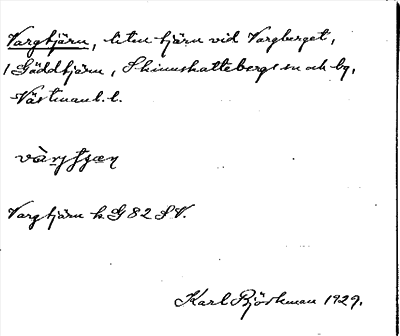 Vargtjärn, liten tjärn vid Vargberget,
1 Gäddtjärn, Skinnskattebergs sn och bg,
Västmanl. l.
Vargtjärn k. G 82 SV.
Karl Björkman 1929.